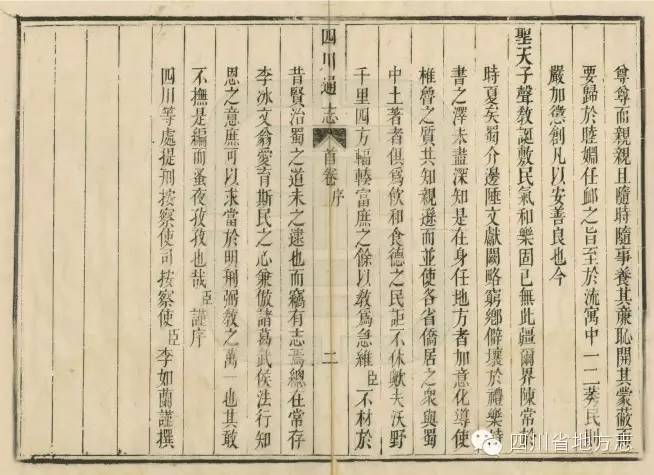 尊尊而親親且隨時隨事養其廉恥開其蒙蔽而
要歸於睦婣任䘏之旨至於流寓中一二莠民則
嚴加懲創凡以安善良也今
聖天子聲教誕敷民氣和樂固已無此疆爾界陳常
時夏矣蜀介邊陲文獻闕略窮鄉僻壤於禮樂詩
書之澤未盡深知是在身任地方者加意化導使
椎魯之質共知親遜而並使各省僑居之衆與蜀
中土著者俱爲飲和食德之民詎不休歟夫沃野
千里四方輻輳富庶之餘以教爲急雖臣不材於
四川通志 首卷 序 二
昔賢治蜀之道未之逮也而竊有志焉總在常存
李冰文翁愛育斯民之心兼倣諸葛武侯法行知
恩之意庶可以求當於明刑弼教之萬一也其敢
不撫是編而蚤夜孜孜也哉臣謹序
四川等處提刑按察使司按察使臣李如蘭謹撰
四川省地方志